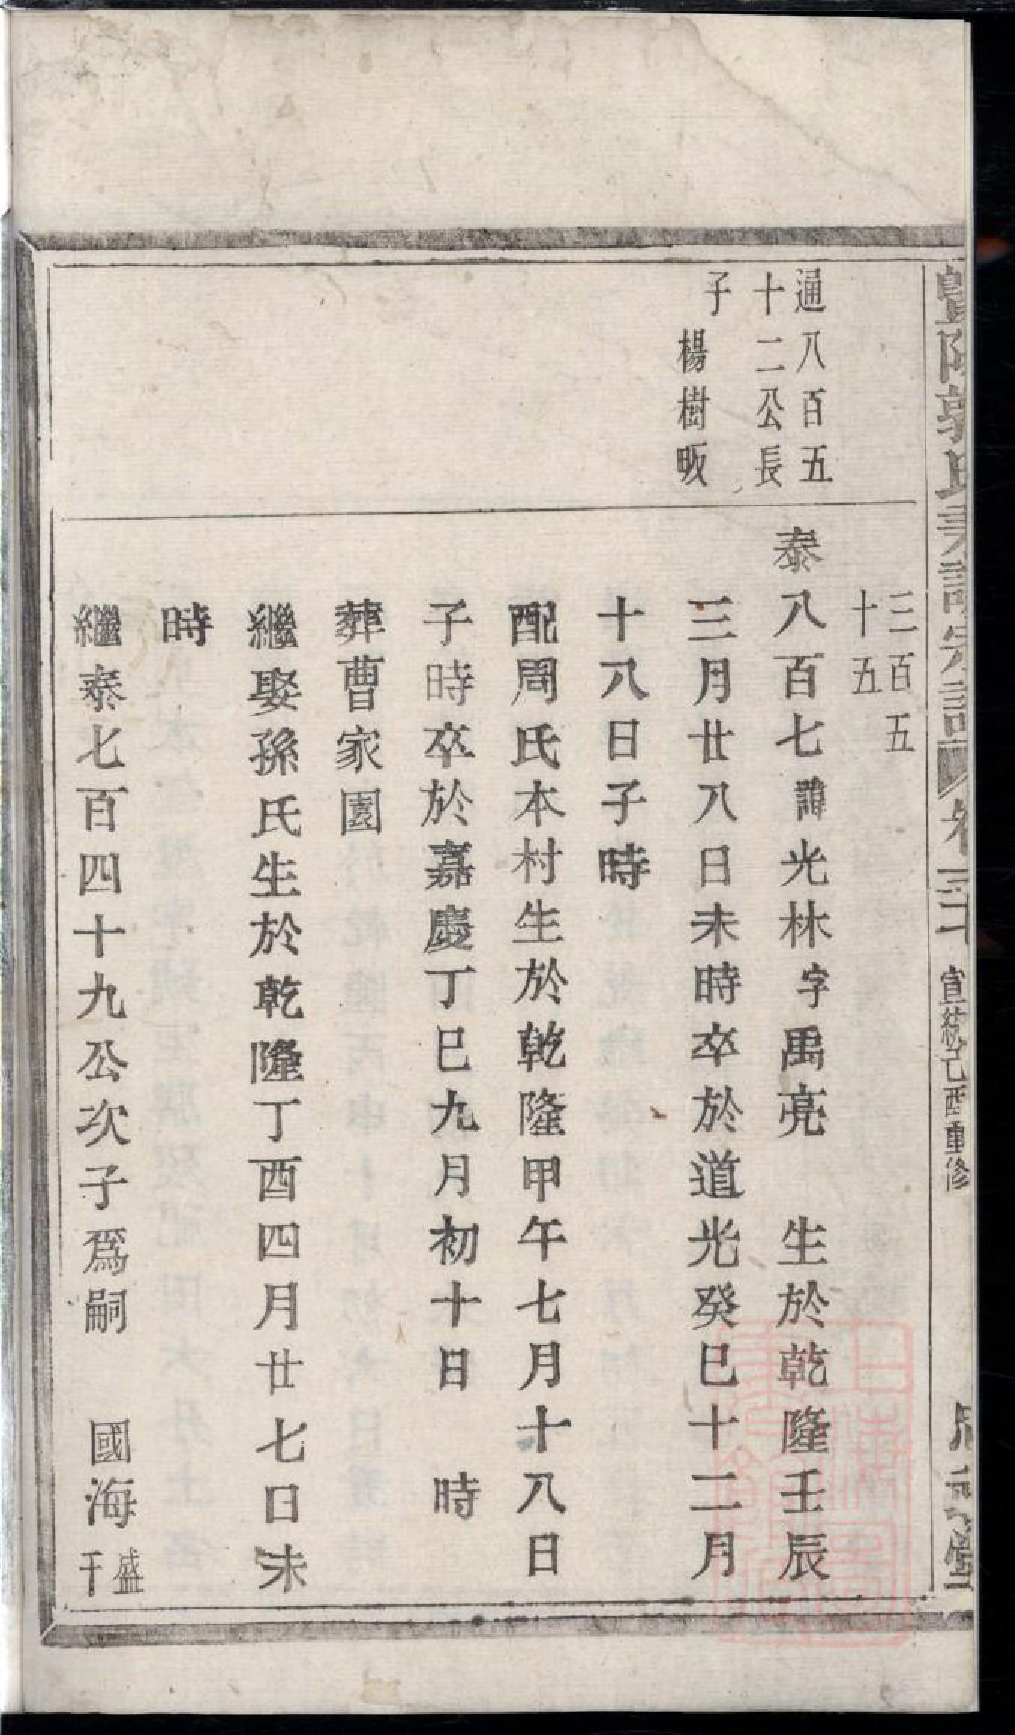 暨陽郭氏彙譜宗譜 卷二十 宣統己酉重修
通八百五
十二公長
子
楊樹畈
三百五
十五
泰八百七諱光林字禹亮 生於乾隆壬辰
三月廿八日未時卒於道光癸巳十二月
十八日子時
配周氏本村生於乾隆甲午七月十八日
子時卒於嘉慶丁巳九月初十日 時
葬曹家園
繼娶孫氏生於乾隆丁酉四月廿七日未
時
繼泰七百四十九公次子爲嗣 國海盛千